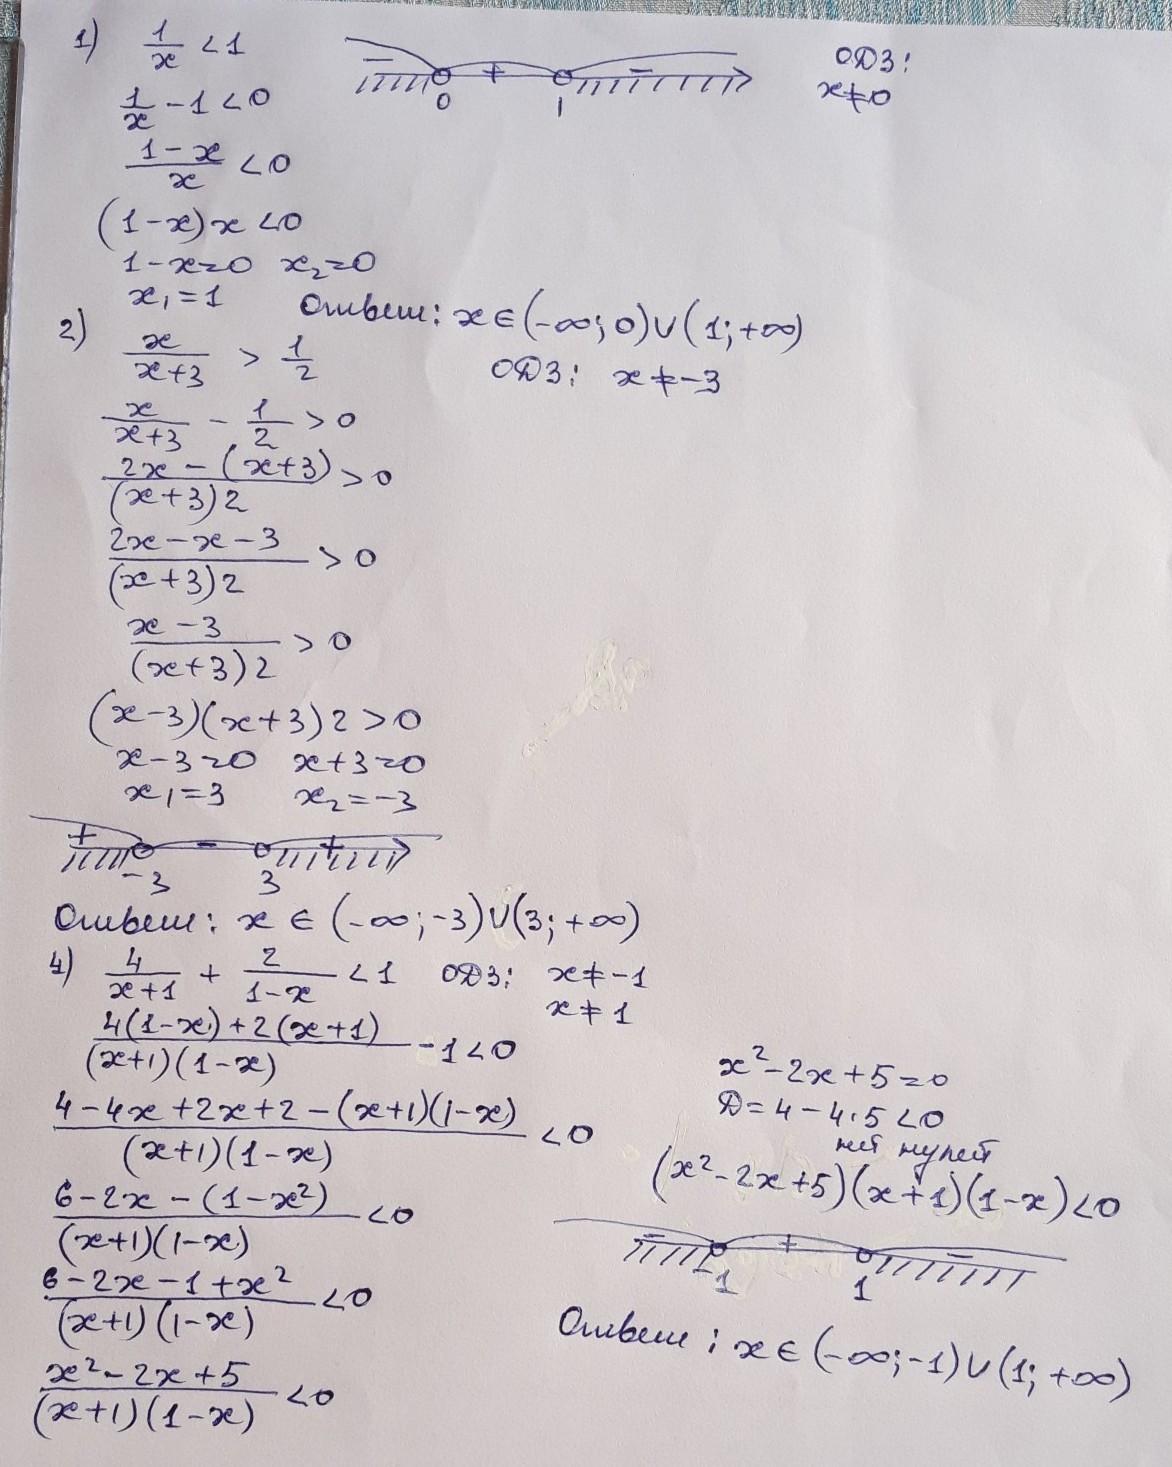 1) 1/x < 1
ОДЗ:
x ≠ 0
− + −
0 1
1/x − 1 < 0
(1 − x)/x < 0
(1 − x)x < 0
1 − x = 0 x₂ = 0
x₁ = 1 Ответ: x ∈ (−∞; 0) ∪ (1; +∞)
2) x/(x+3) > 1/2 ОДЗ: x ≠ −3
x/(x+3) − 1/2 > 0
(2x − (x+3))/((x+3)2) > 0
(2x − x − 3)/((x+3)2) > 0
(x − 3)/((x+3)2) > 0
(x−3)(x+3)2 > 0
x − 3 = 0 x + 3 = 0
x₁ = 3 x₂ = −3
+ − +
−3 3
Ответ: x ∈ (−∞; −3) ∪ (3; +∞)
4) 4/(x+1) + 2/(1−x) < 1 ОДЗ: x ≠ −1
x ≠ 1
(4(1−x) + 2(x+1))/((x+1)(1−x)) − 1 < 0
(4 − 4x + 2x + 2 − (x+1)(1−x))/((x+1)(1−x)) < 0
(6 − 2x − (1 − x²))/((x+1)(1−x)) < 0
(6 − 2x − 1 + x²)/((x+1)(1−x)) < 0
(x² − 2x + 5)/((x+1)(1−x)) < 0
x² − 2x + 5 = 0
D = 4 − 4·5 < 0
нет нулей
(x² − 2x + 5)(x+1)(1−x) < 0
− + −
−1 1
Ответ: x ∈ (−∞; −1) ∪ (1; +∞)